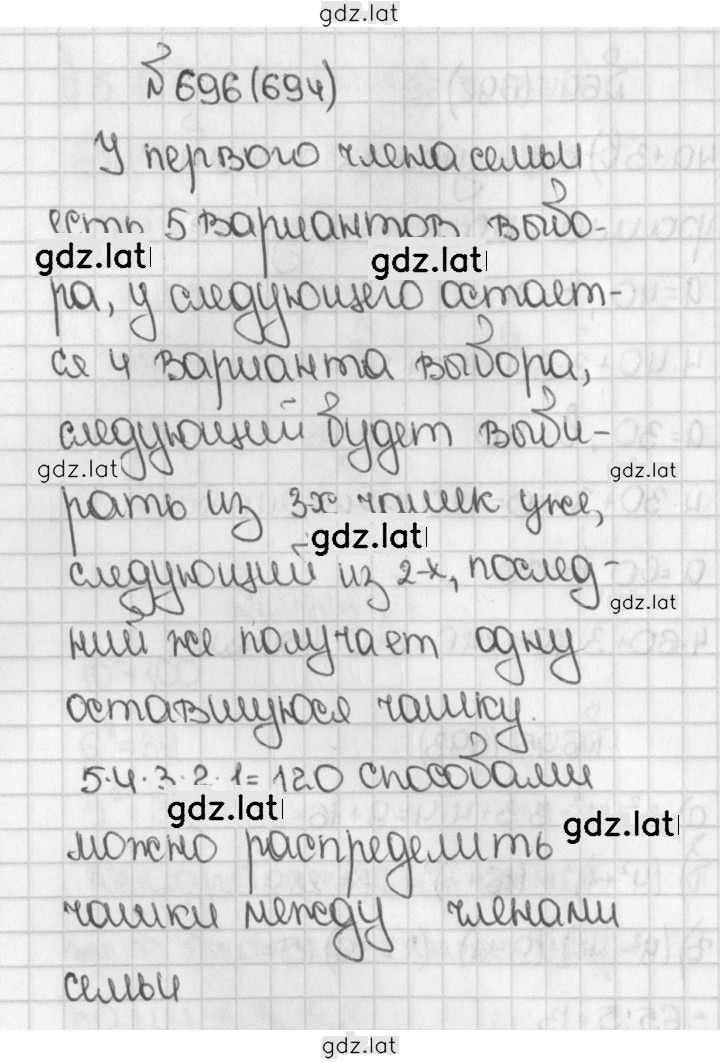 gdz.lat
№ 696 (694)
У первого члена семьи
есть 5 вариантов выбо-
gdz.lat gdz.lat
ра, у следующего остает-
ся 4 варианта выбора,
следующий будет выби-
gdz.lat gdz.lat
рать из 3х чашек уже,
gdz.lat
следующий из 2-х, послед-
gdz.lat
ний же получает одну
оставшуюся чашку.
5·4·3·2·1=120 способами
gdz.lat gdz.lat
можно распределить
чашки между членами
семьи
gdz.lat